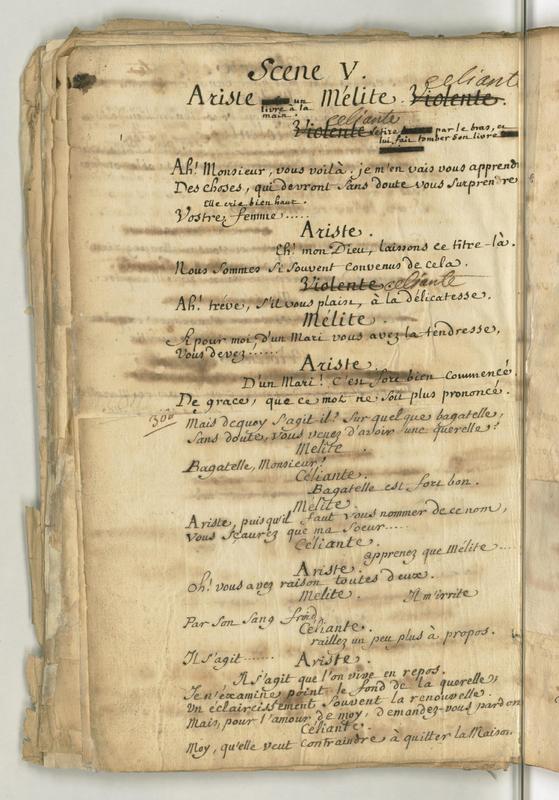 Scene V.
celiante
Ariste un livre à la main. Mélite. Violente.
celiante
Violente le tire par le bras, et lui fait tomber son livre
Ah! Monsieur, vous voilà, je m'en vais vous apprend
Des choses, qui devront sans doute vous surprendre
Elle crie bien haut.
Vostre femme.....
Ariste.
Eh! mon Dieu, laissons ce titre-là.
Nous sommes si souvent convenus de cela.
Violente. celiante
Ah! tréve, s'il vous plaist, à la délicatesse.
Mélite.
Si pour moi d'un Mari vous avez la tendresse,
Vous devez......
Ariste.
D'un Mari! C'est fort bien commencé.
De grace, que ce mot ne soit plus prononcé.
300
Mais dequoy s'agit il? Sur quelque bagatelle,
Sans doute, vous venez d'avoir une querelle?
Mélite.
Bagatelle, Monsieur!
Céliante.
Bagatelle est fort bon.
Mélite.
Ariste, puisqu'il faut vous nommer de ce nom,
Vous sçaurez que ma Soeur.....
Céliante.
apprenez que Mélite....
Ariste.
Oh! vous avez raison toutes deux.
Mélite.
Il m'irrite
Par son sang froid.
Céliante.
raillez un peu plus à propos.
Il s'agit.......
Ariste.
Il s'agit que l'on vive en repos.
Je n'examine point le fond de la querelle,
Un éclaircissement souvent la renouvelle.
Mais, pour l'amour de moy, demandez-vous pardon
Céliante.
Moy, qu'elle veut contraindre à quitter la Maison.